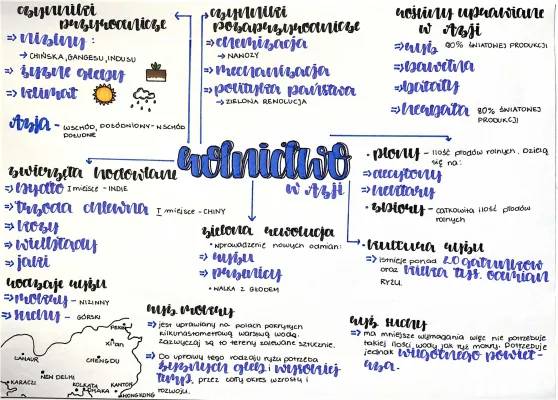 czynniki
przyrodnicze
⇒ niziny:
→ CHIŃSKA, GANGESU, INDUSU
⇒ żyzne gleby
⇒ klimat
Azja → WSCHÓD, POŁUDNIOWY-WSCHÓD
POŁUDNIE
czynniki
pozaprzyrodnicze
⇒ chemizacja
→ NAWOZY
⇒ mechanizacja
⇒ polityka państwa
→ ZIELONA REWOLUCJA
rośliny uprawiane
w Azji
⇒ ryż 90% ŚWIATOWEJ PRODUKCJI
⇒ bawełna
⇒ bataty
⇒ herbata 80% ŚWIATOWEJ
PRODUKCJI
rolnictwo
w Azji
zwierzęta hodowlane
⇒ bydło I miejsce - INDIE
⇒ trzoda chlewna I miejsce - CHINY
⇒ kozy
⇒ wielbłądy
⇒ jaki
zielona rewolucja
• wprowadzenie nowych odmian:
⇒ ryżu
⇒ pszenicy
• WALKA Z GŁODEM
• plony - ilość płodów rolnych. Dzielą
się na:
⇒ decytony
⇒ hektary
• zbiory - całkowita ilość płodów
rolnych
• kultura ryżu
⇒ istnieje ponad 20 gatunków
oraz kilka tys. odmian
RYŻU.
rodzaje ryżu
⇒ mokry - NIZINNY
⇒ suchy - GÓRSKI
PEKIN
XI'AN
LAHAUR
CHENGDU
NEW DELHI
KARACZI
KOLKATA
DHAKA
KANTON
HONGKONG
ryż mokry
⇒ jest uprawiany na polach pokrytych
kilkunastometrową warstwą wody.
Zazwyczaj są to tereny zalewane sztucznie.
⇒ Do uprawy tego rodzaju ryżu potrzeba
żyznych gleb i wysokiej
temp. przez cały okres wzrostu i
rozwoju.
ryż suchy
⇒ ma mniejsze wymagania więc nie potrzebuje
takiej ilości wody jak ryż mokry. Potrzebuje
jednak wilgotnego powiet-
rza.